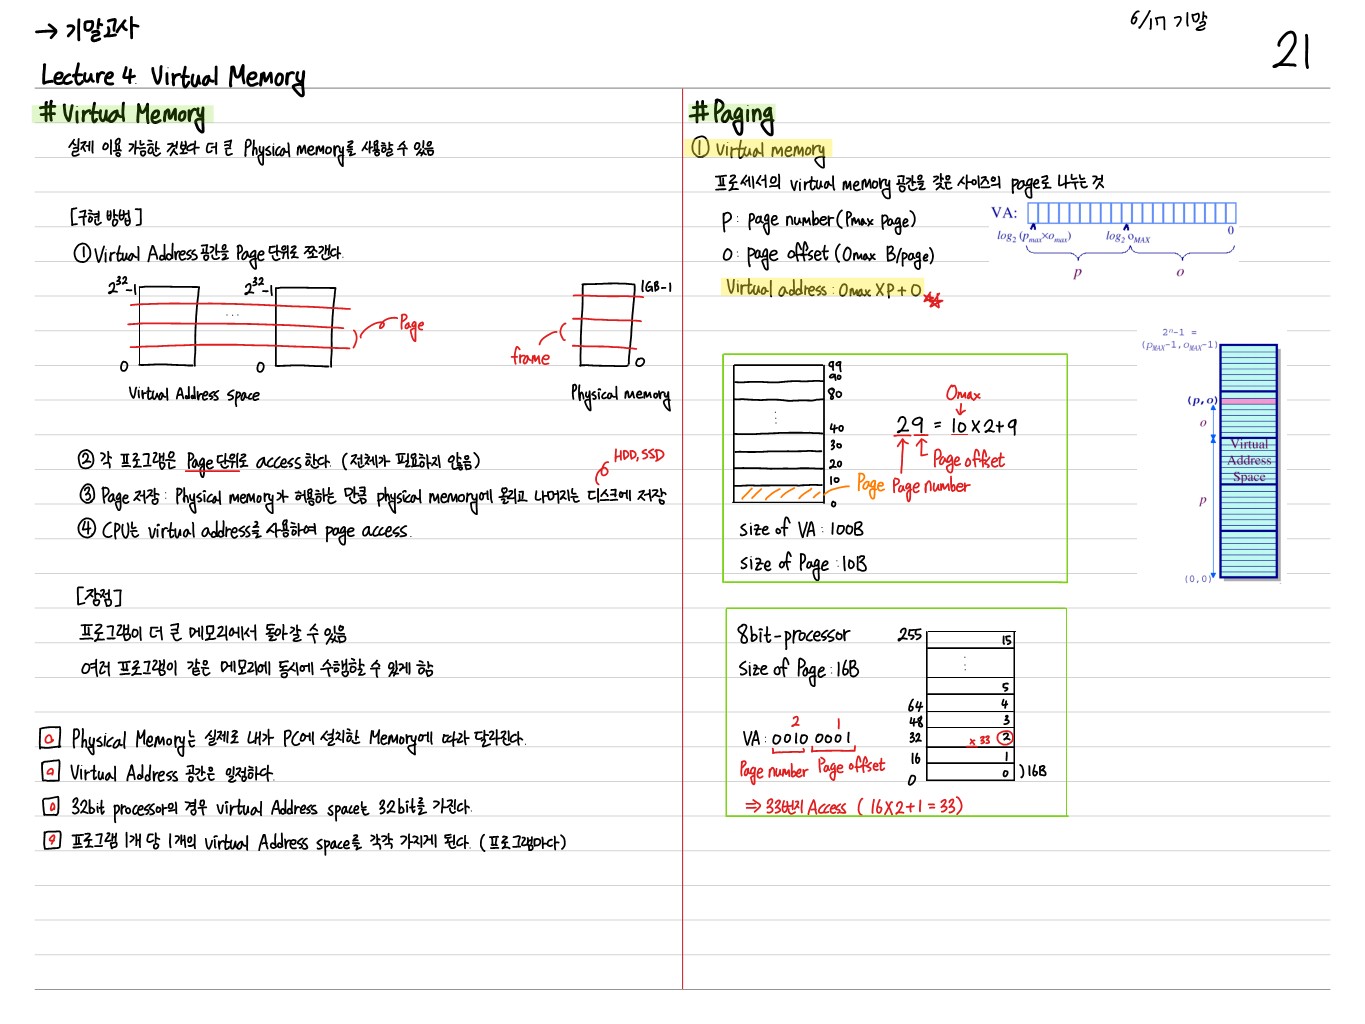 → 기말고사
6/17 기말
21
Lecture 4. Virtual Memory
# Virtual Memory
실제 이용 가능한 것보다 더 큰 Physical memory를 사용할 수 있음
[구현 방법]
① Virtual Address 공간을 Page 단위로 쪼갠다.
2^32-1 2^32-1 1GB-1
...
Page
frame
0 0 0
Virtual Address space Physical memory
② 각 프로그램은 Page 단위로 access한다. (전체가 필요하지 않음)
HDD, SSD
③ Page 저장 : Physical memory가 허용하는 만큼 physical memory에 올리고 나머지는 디스크에 저장
④ CPU는 virtual address를 사용하여 page access.
[장점]
프로그램이 더 큰 메모리에서 돌아갈 수 있음
여러 프로그램이 같은 메모리에 동시에 수행할 수 있게 함
Physical Memory는 실제로 내가 PC에 설치한 Memory에 따라 달라진다.
Virtual Address 공간은 일정하다.
32bit processor의 경우 virtual Address space는 32bit를 가진다.
프로그램 1개 당 1개의 virtual Address space를 각각 가지게 된다. (프로그램마다)
# Paging
① Virtual memory
프로세서의 virtual memory 공간을 같은 사이즈의 page로 나누는 것
P : page number (Pmax page)
O : page offset (Omax B/page)
Virtual address : Omax X P + O
VA:
log2 (pmax×omax) log2 oMAX 0
p o
2^n-1 =
(pMAX-1, oMAX-1)
(p,o)
o
Virtual
Address
Space
p
(0,0)
99
90
80
⋮
40
30
20
10
0
Page
Omax
29 = 10 X 2 + 9
Page offset
Page number
size of VA : 100B
size of Page : 10B
8bit-processor
size of Page : 16B
255 15
⋮
5
64 4
48 3
32 x 33 2
16 1
0 0 ) 16B
2 1
VA : 0010 0001
Page number Page offset
⇒ 33번지 Access ( 16 X 2 + 1 = 33)